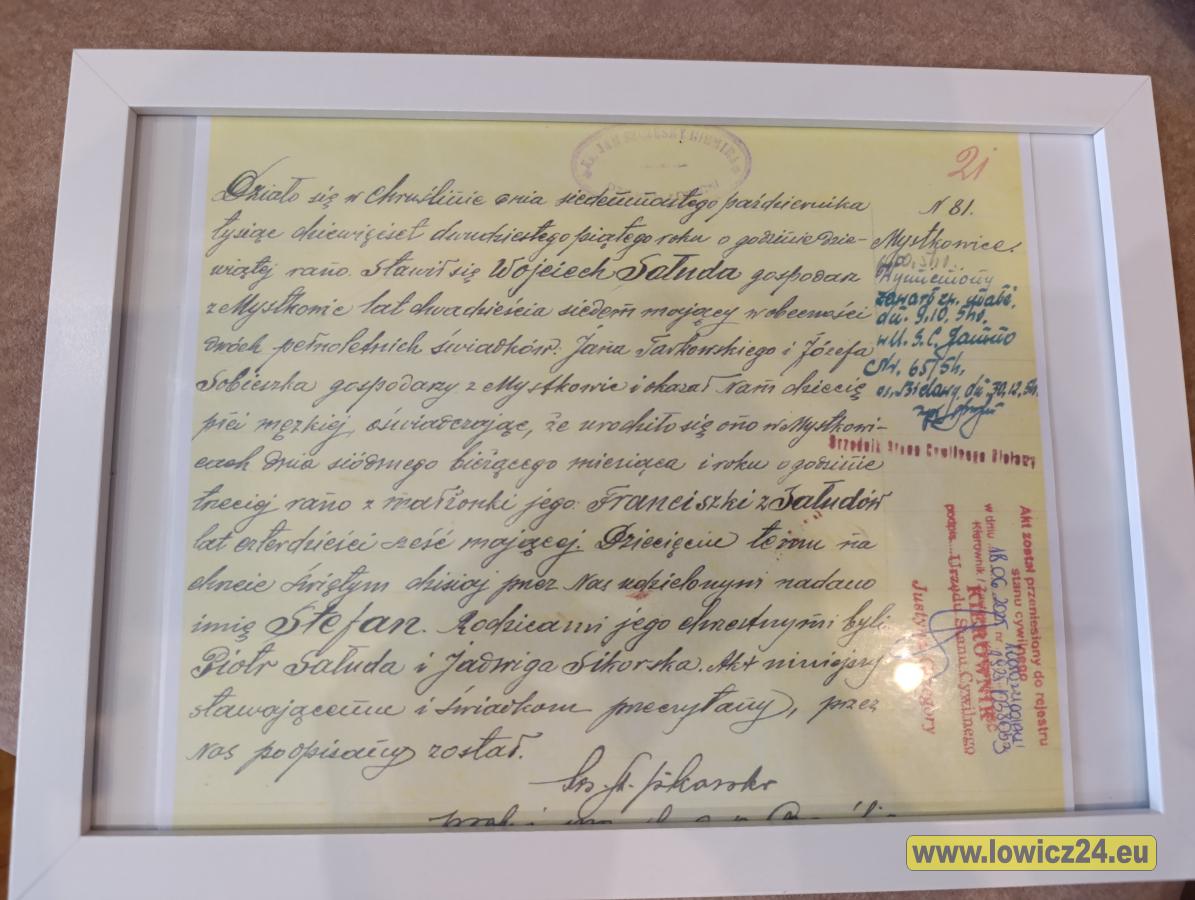 21
Działo się w Chruślinie dnia siedemnastego października
tysiąc dziewięćset dwudziestego piątego roku o godzinie dzie-
wiątej rano. Stawił się Wojciech Sałuda gospodarz
z Mystkowic lat dwadzieścia siedem mający w obecności
dwóch pełnoletnich świadków: Jana Tarkowskiego i Józefa
Sobieszka gospodarzy z Mystkowic i okazał Nam dziecię
płci męzkiej, oświadczając, że urodziło się ono w Mystkowi-
cach dnia siódmego bieżącego miesiąca i roku o godzinie
trzeciej rano z małżonki jego: Franciszki z Sałudów
lat czterdzieści sześć mającej. Dziecięciu temu na
chrcie Świętym dzisiaj przez Nas udzielonym nadano
imię Stefan. Rodzicami jego chrzestnymi byli
Piotr Sałuda i Jadwiga Sikorska. Akt niniejszy
stawającemu i świadkom przeczytany, przez
Nas podpisany został.
N 81.
Mystkowice.
Wymieniony
zawarł zw. małż.
dn. 9.10.54r.
w U.S.C. Jamno
Nr. 65/54.
Bielawy dn. 30.12.54.
Urzędnik Stanu Cywilnego Bielawy
Akt został przeniesiony do rejestru
stanu cywilnego
w dniu 18.06
KIEROWNIK
podpis Urzędu Stanu Cywilnego
www.lowicz24.eu